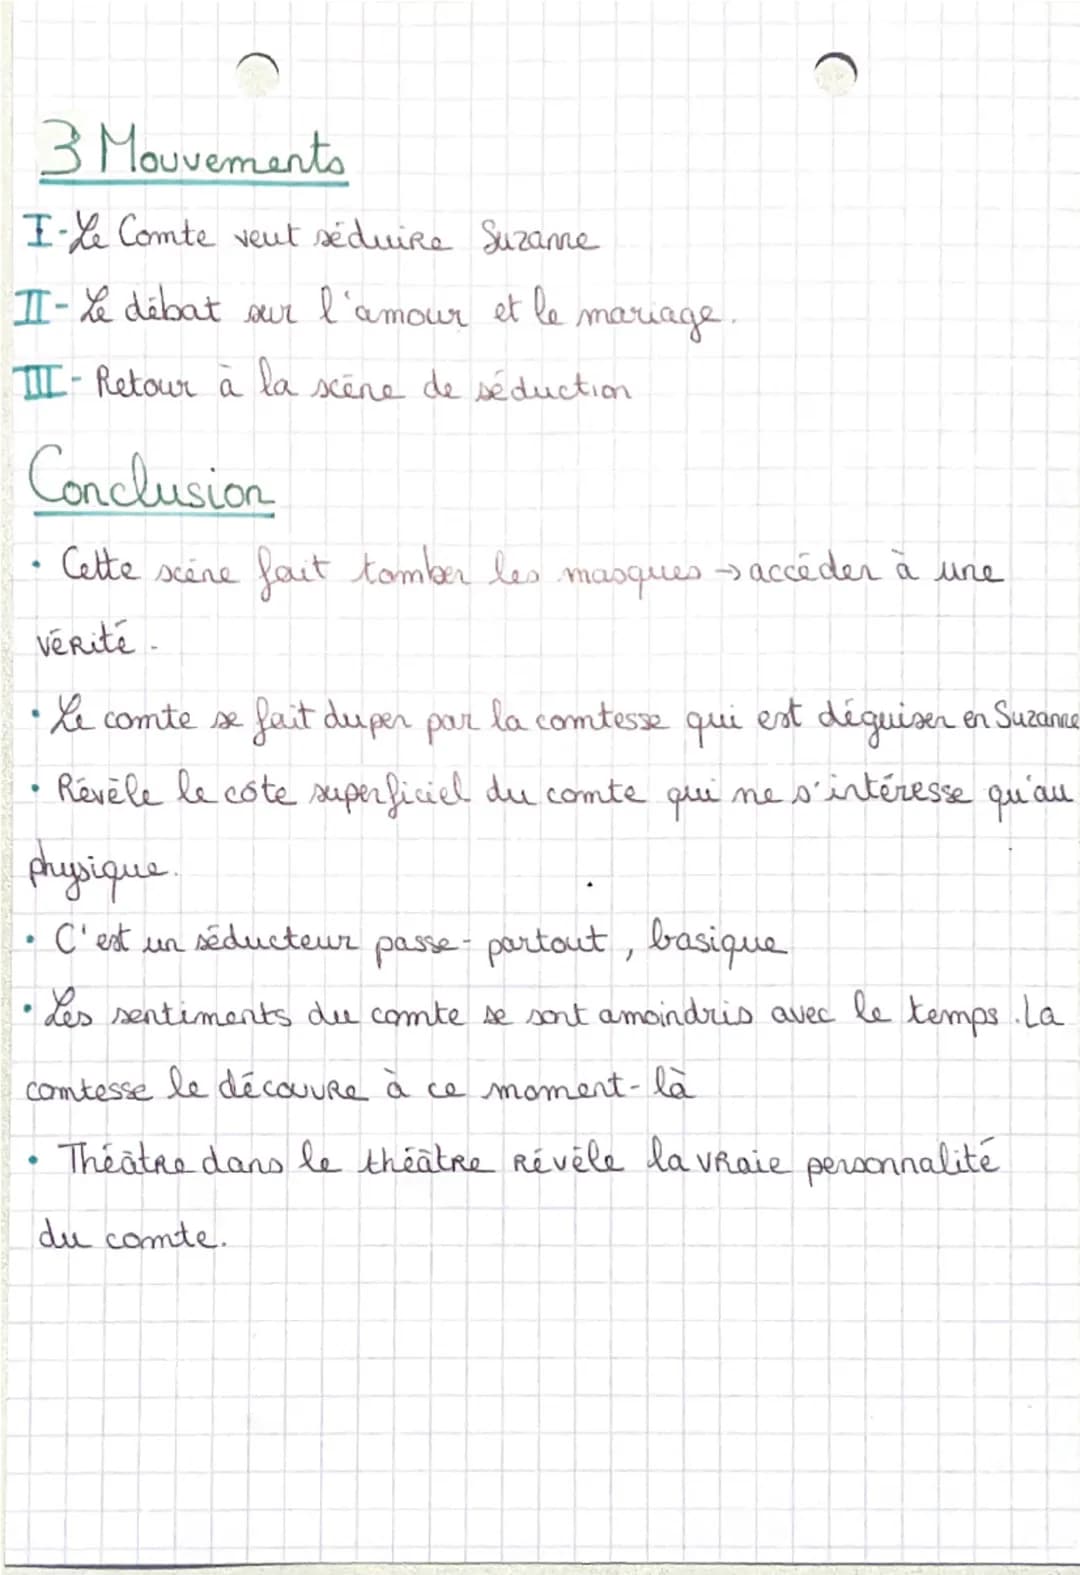 3 Mouvements
I-Le Comte veut séduire Suzanne
II- Le débat sur l'amour et le mariage.
III- Retour à la scène de séduction
Conclusion
• Cette scène fait tomber les masques → accéder à une
vérité.
• Le comte se fait duper par la comtesse qui est déguiser en Suzanne
• Révèle le côte superficiel du comte qui ne s'intéresse qu'au
physique.
• C'est un séducteur passe-partout, basique
• Les sentiments du comte se sont amoindris avec le temps. La
comtesse le découvre à ce moment-là
• Théâtre dans le théâtre révèle la vraie personnalité
du comte.